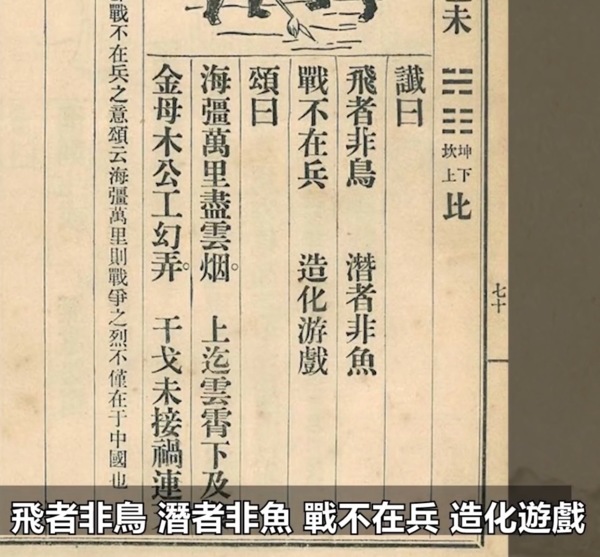 七十
未 ䷇ 坤下坎上 比
讖曰
飛者非鳥 潛者非魚
戰不在兵 造化游戲
頌曰
海疆萬里盡雲烟。上迄雲霄下及
金母木公工幻弄。干戈未接禍連
戰不在兵之意頌云海疆萬里則戰爭之烈不僅在于中國也
飛者非鳥 潛者非魚 戰不在兵 造化遊戲